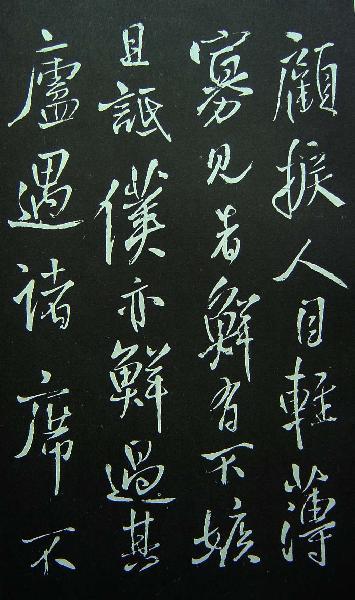 顧人目輕薄
寡見者鮮有不嫉
且詆僕亦鮮過其
廬遇諸席不